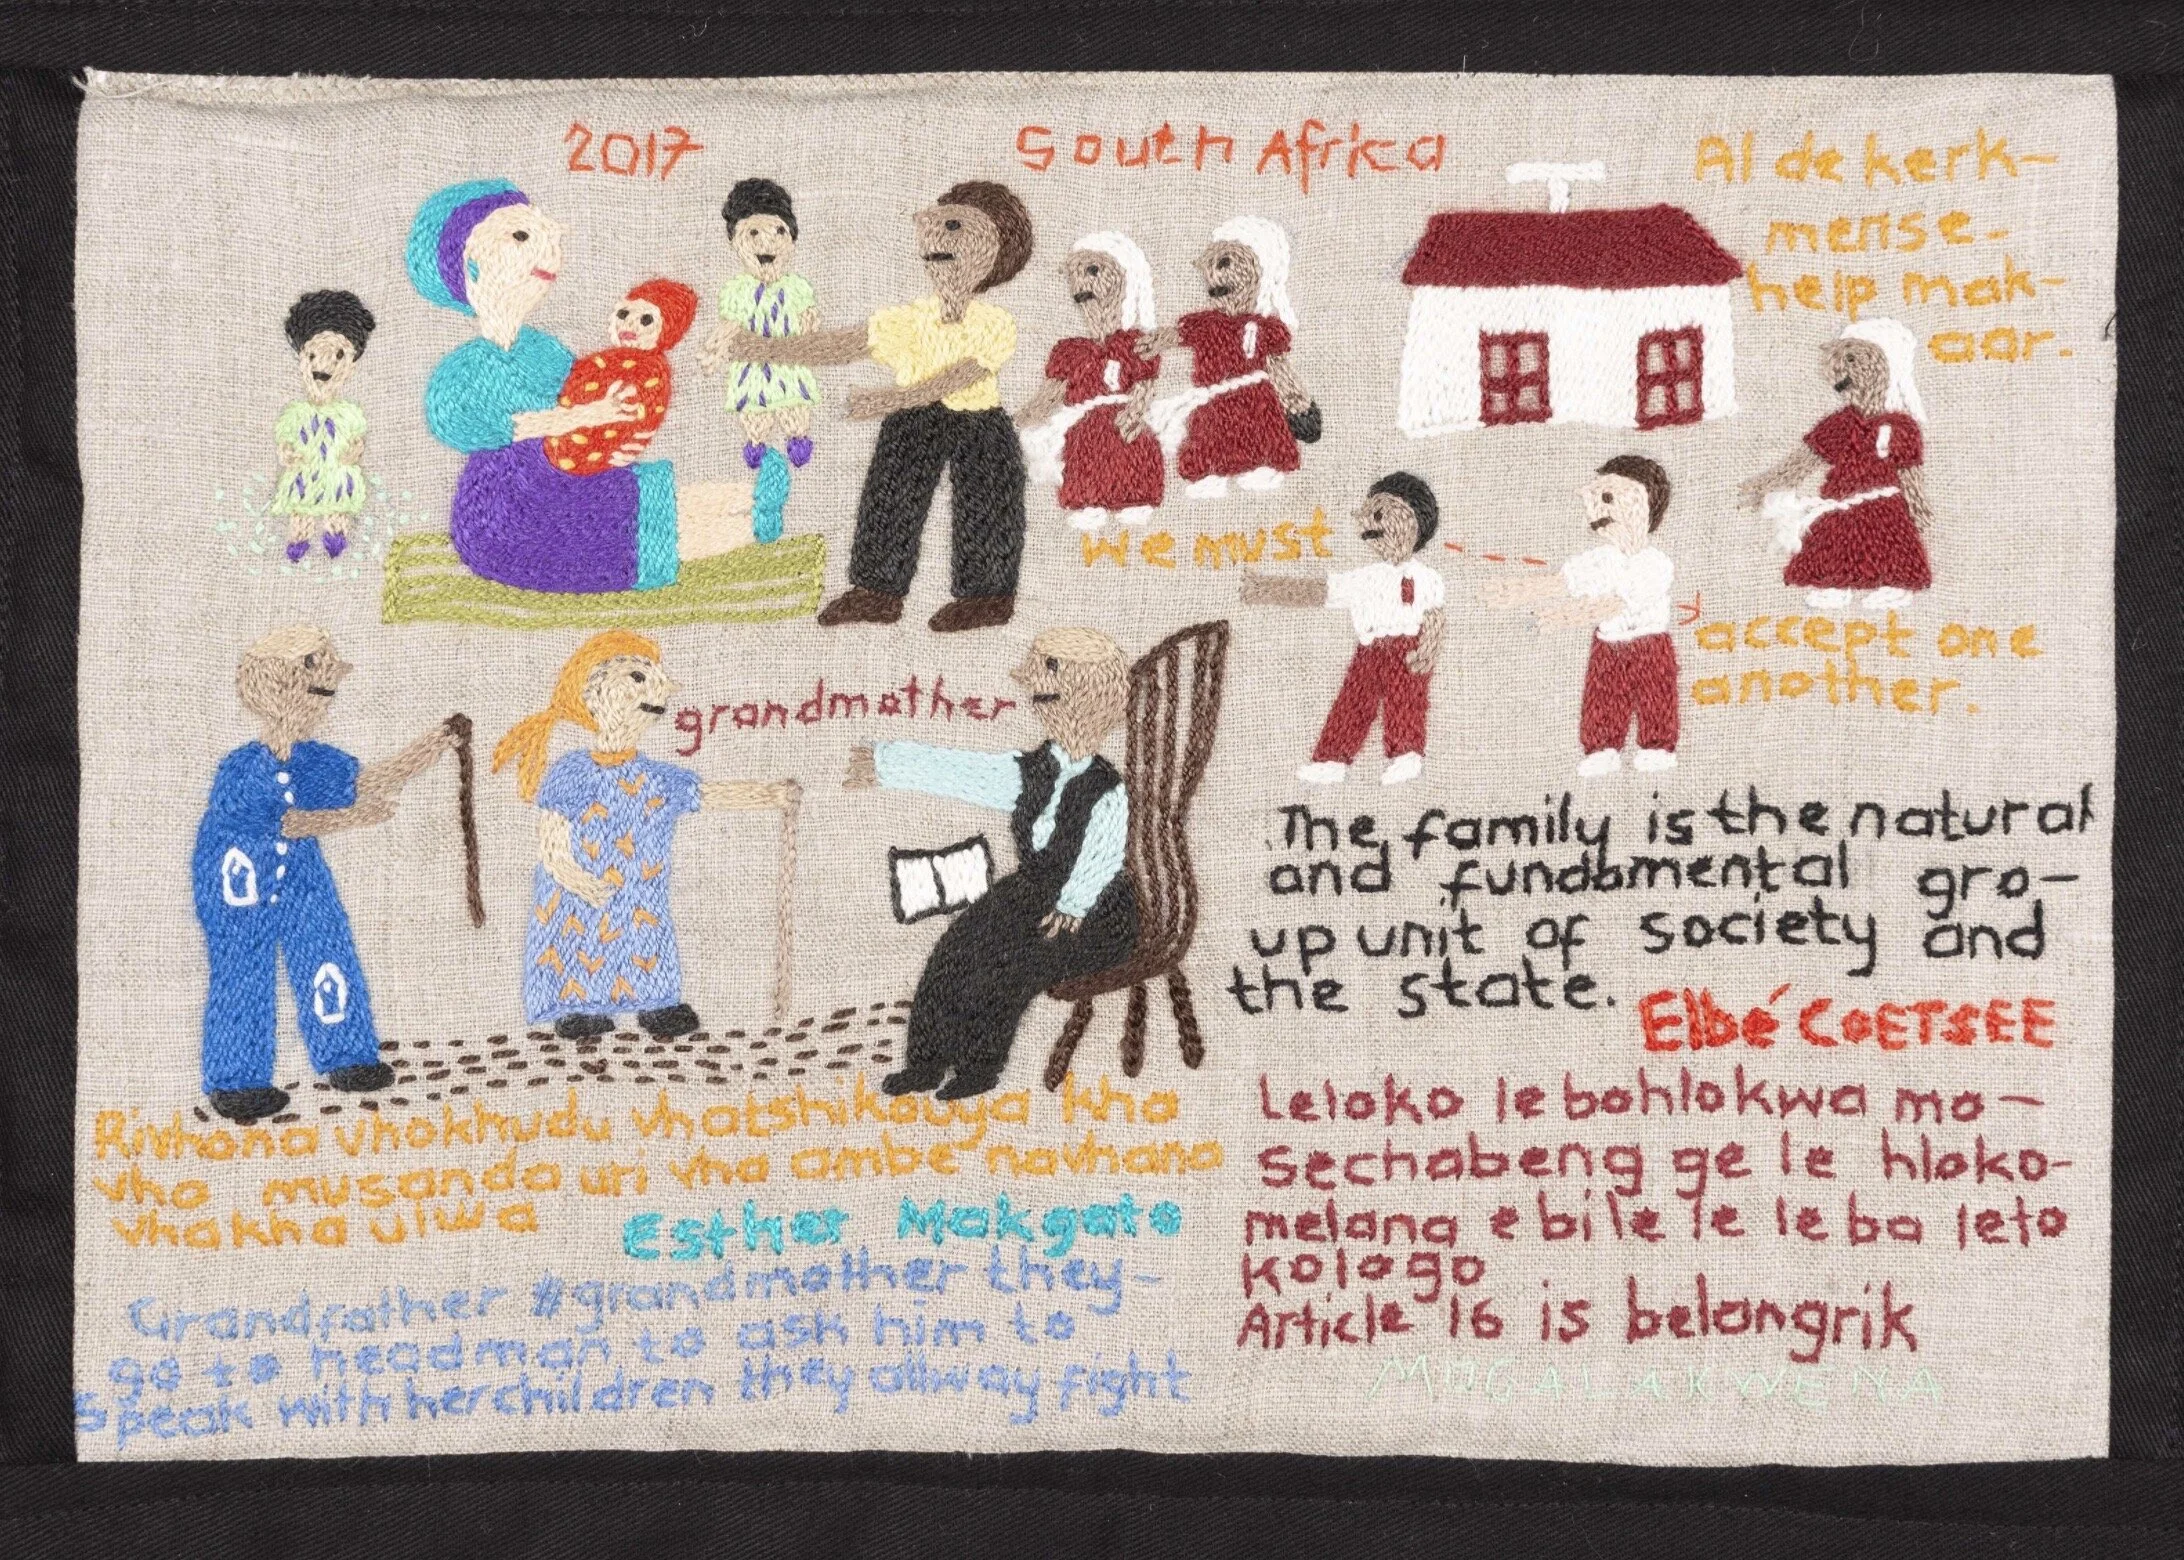 2017
South Africa
Al de kerk-
mense.
help mak-
aar.
we must
accept one
another.
grandmother
The family is the natural
and fundamental gro-
up unit of society and
the state.
Elbé COETSEE
Rivhona vhokhudu vhatshikouya kha
vho musanda uri vha ambe navhana
vhakha ulwa
Esther Makgato
Grandfather #grandmother they-
go to headman to ask him to
Speak with her children they allway fight
Leloko le bohlokwa mo-
sechabeng ge le hloko-
melana e bile le le ba leto
kologo
Article 16 is belangrik
MOGALAKWENA